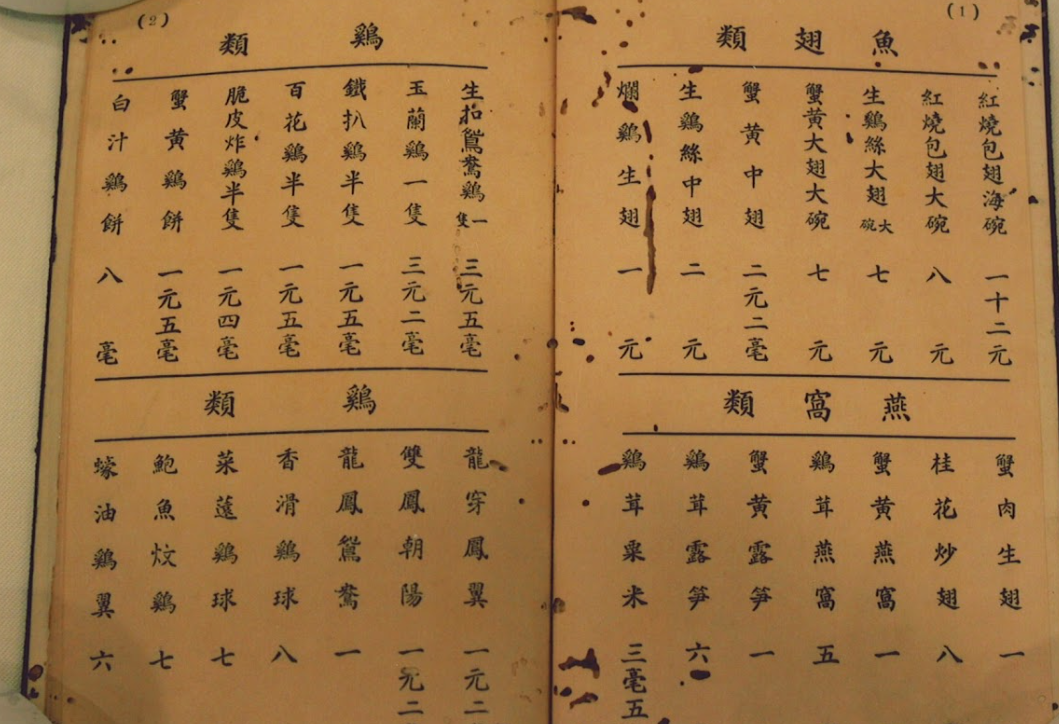 (1)
魚翅類
紅燒包翅海碗 一十二元
紅燒包翅大碗 八元
生鷄絲大翅大碗 七元
蟹黃大翅大碗 七元
蟹黃中翅 二元二毫
生鷄絲中翅 二元
爛鷄生翅 一元
燕窩類
蟹肉生翅 一
桂花炒翅 八
蟹黃燕窩 一
鷄茸燕窩 五
蟹黃露笋 一
鷄茸露笋 六
鷄茸粟米 三毫五
(2)
鷄類
生扣鴛鴦鷄一隻 三元五毫
玉蘭鷄一隻 三元二毫
鐵扒鷄半隻 一元五毫
百花鷄半隻 一元五毫
脆皮炸鷄半隻 一元四毫
蟹黃鷄餅 一元五毫
白汁鷄餅 八毫
鷄類
龍穿鳳翼 一元二
雙鳳朝陽 一元二
龍鳳鴛鴦 一
香滑鷄球 八
菜薳鷄球 七
鮑魚炆鷄 七
蠔油鷄翼 六